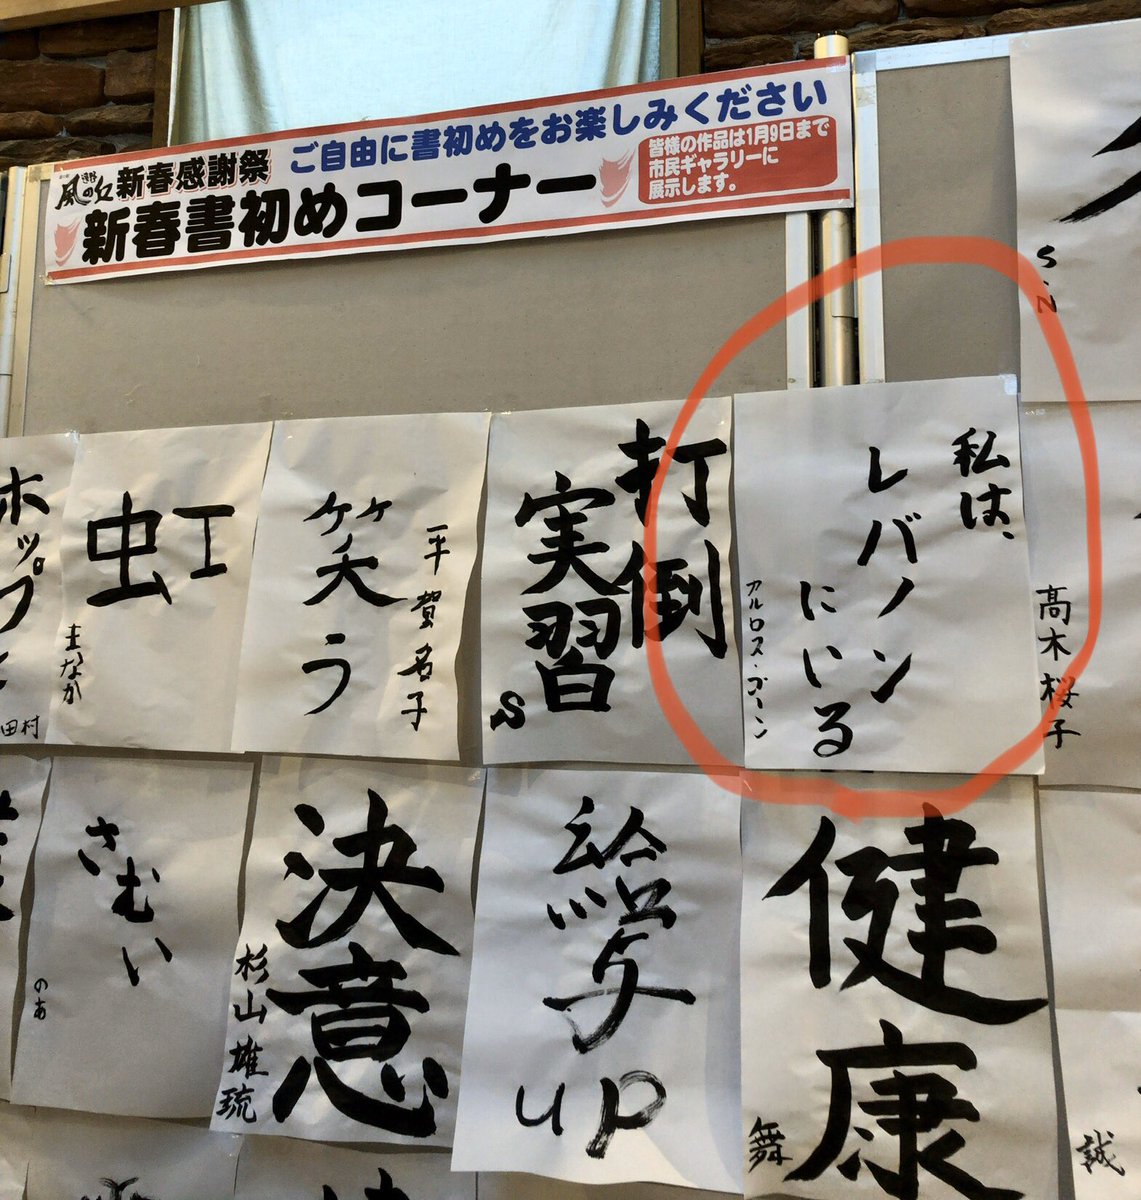 ご自由に書初めをお楽しみください
風の丘
新春感謝祭
新春書初めコーナー
皆様の作品は1月9日まで
市民ギャラリーに
展示します。
S.N
私は、
レバノン
にいる
アルロス・ゴーン
打倒
実習
S
平賀名子
笑う
虹
まなか
ホップ
田村
高木桜子
健康
舞
給与
up
決意
杉山雄琉
さむい
のあ
誠